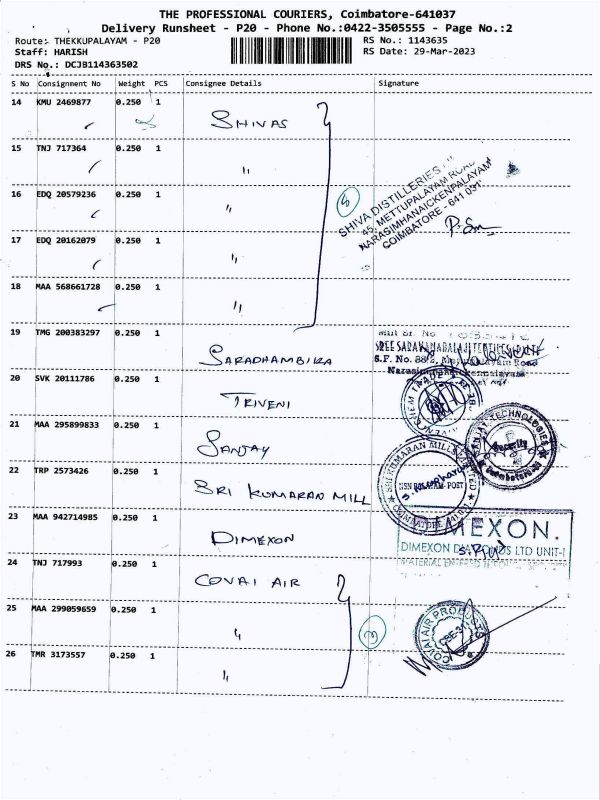 THE PROFESSIONAL COURIERS, Coimbatore-641037
Delivery Runsheet - P20 - Phone No.:0422-3505555 - Page No.:2
Route: THEKKUPALAYAM - P20
RS No.: 1143635
Staff: HARISH
RS Date: 29-Mar-2023
DRS No.: DCJB114363502
S No Consignment No Weight PCS Consignee Details Signature
14 KMU 2469877 0.250 1 SHIVAS
15 TNJ 717364 0.250 1 "
16 EDQ 20579236 0.250 1 "
17 EDQ 20162079 0.250 1 "
18 MAA 568661728 0.250 1 "
5
SHIVA DISTILLERIES
45, METTUPALAYAM ROAD
NARASIMHANAICKENPALAYAM
COIMBATORE - 641 031
19 TMG 200383297 0.250 1 SARADHAMBIKA
S.F. No.
20 SVK 20111786 0.250 1 TRIVENI
21 MAA 295899833 0.250 1 SANJAY
TECHNOLOGIES
Security
22 TRP 2573426 0.250 1 SRI KUMARAN MILL
SRI KUMARAN MILLS LIMITED
COIMBATORE
23 MAA 942714985 0.250 1 DIMEXON
DIMEXON.
DIMEXON DIAMONDS LTD UNIT-I
24 TNJ 717993 0.250 1 COVAI AIR
25 MAA 299059659 0.250 1 "
26 TMR 3173557 0.250 1 "
3
COVAI AIR PRODUCTS
CBE-31